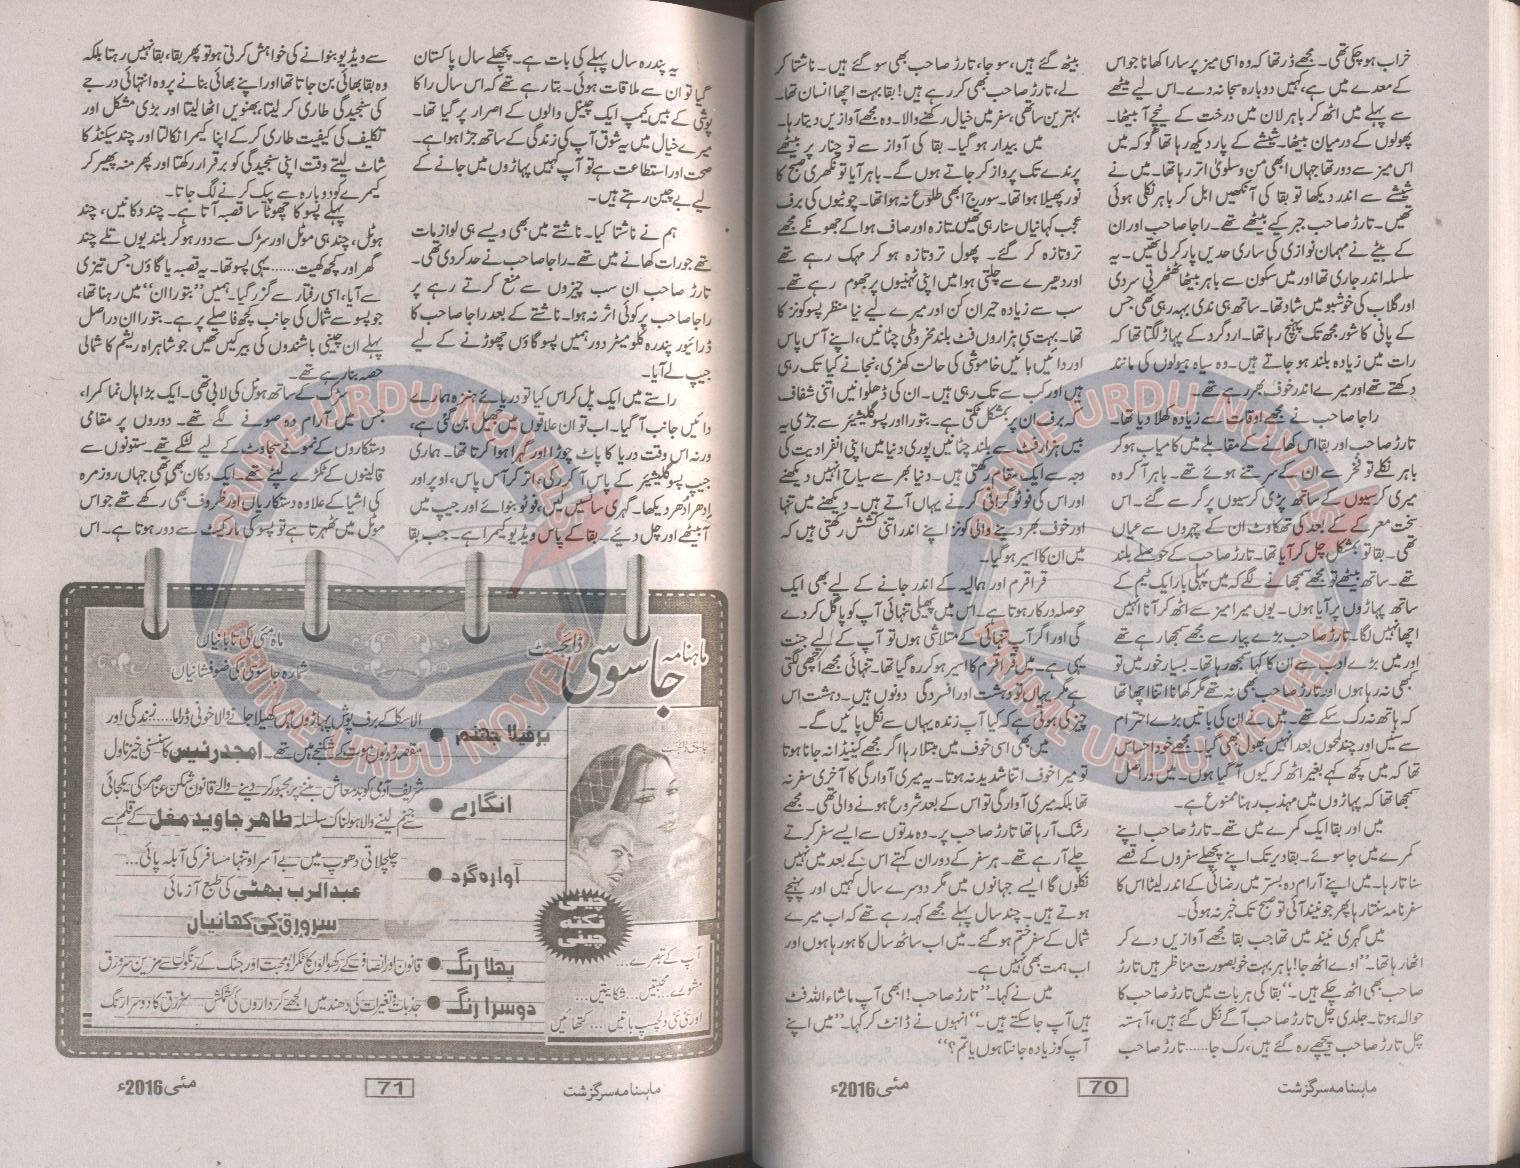 خراب ہو چکی تھی۔ مجھے ڈر تھا کہ وہ اسی میز پر سارا کھانا جو اس
کے معدے میں ہے، کہیں دوبارہ سجا نہ دے۔ اس لیے بیٹھے
سے پہلے میں اٹھ کر باہر لان میں درخت کے نیچے آ بیٹھا۔
پھولوں کے درمیان بیٹھا۔ شیشے کے پار دیکھ رہا تھا گو کہ میں
اس میز سے دور تھا جہاں ابھی من و سلویٰ اتر رہا تھا۔ میں نے
شیشے سے اندر دیکھا تو بقا کی آنکھیں ابل کر باہر نکلی ہوئی
تھیں۔ تارڑ صاحب جبر کیے بیٹھے تھے۔ راجا صاحب اور ان
کے بیٹے نے مہمان نوازی کی ساری حدیں پار کر لی تھیں۔ یہ
سلسلہ اندر جاری تھا اور میں سکون سے باہر بیٹھا ٹھٹھرتی سردی
اور گلاب کی خوشبو میں شاد تھا۔ ساتھ ہی ندی بہہ رہی تھی جس
کے پانی کا شور مجھ تک پہنچ رہا تھا۔ ارد گرد کے پہاڑ لگتا تھا کہ
رات میں زیادہ بلند ہو جاتے ہیں۔ وہ سیاہ ہیولوں کی مانند
دکھتے تھے اور میرے اندر خوف بھر رہے تھے۔
راجا صاحب نے مجھے اوقات سے زیادہ کھلا دیا تھا۔
تارڑ صاحب اور بقا اس کھانے کے مقابلے میں کامیاب ہو کر
باہر نکلے تو فخر سے ان کے سر تنے ہوئے تھے۔ باہر آ کر وہ
میری کرسیوں کے ساتھ پڑی کرسیوں پر گر سے گئے۔ اس
سخت معرکے کے بعد کی تھکاوٹ ان کے چہروں سے عیاں
تھی۔ بقا تو بمشکل چل کر آیا تھا۔ تارڑ صاحب کے حوصلے بلند
تھے۔ ساتھ بیٹھے تو مجھے سمجھانے لگے کہ میں پہلی بار ایک ٹیم کے
ساتھ پہاڑوں پر آیا ہوں۔ یوں میرا میز سے اٹھ کر آنا انہیں
اچھا نہیں لگا۔ تارڑ صاحب بڑے پیار سے مجھے سمجھا رہے تھے
اور میں بڑے ادب سے ان کا کہا سمجھ رہا تھا۔ بسیار خور میں تو
کبھی نہ رہا ہوں اور تارڑ صاحب بھی نہ تھے مگر کھانا اتنا اچھا تھا
کہ ہاتھ نہ رک سکے تھے۔ میں نے ان کی باتیں بڑے احترام
سے سنیں اور چند لمحوں بعد انہیں بھول بھی گیا۔ مجھے خود احساس
تھا کہ میں کچھ کہے بغیر اٹھ کر کیوں آ گیا ہوں۔ میں دراصل
سمجھا تھا کہ پہاڑوں میں مہذب رہنا ممنوع ہے۔
میں اور بقا ایک کمرے میں تھے۔ تارڑ صاحب اپنے
کمرے میں جا سوئے۔ بقا دیر تک اپنے پچھلے سفروں کے قصے
سناتا رہا۔ میں اپنے آرام دہ بستر میں رضائی کے اندر لیٹا اس کا
سفرنامہ سنتا رہا پھر جو نیند آئی تو صبح تک خبر نہ ہوئی۔
میں گہری نیند میں تھا جب بقا مجھے آوازیں دے کر
اٹھا رہا تھا۔ "اوے اٹھ جا! باہر بہت خوبصورت مناظر ہیں تارڑ
صاحب بھی اٹھ چکے ہیں۔" بقا کی ہر بات میں تارڑ صاحب کا
حوالہ ہوتا۔ جلدی چل تارڑ صاحب آگے نکل گئے ہیں، آہستہ
چل تارڑ صاحب پیچھے رہ گئے ہیں، رک جا...... تارڑ صاحب
بیٹھ گئے ہیں، سو جا، تارڑ صاحب بھی سو گئے ہیں۔ ناشتا کر
لے، تارڑ صاحب بھی کر رہے ہیں! بقا بہت اچھا انسان تھا۔
بہترین ساتھی، سفر میں خیال رکھنے والا۔ وہ مجھے آوازیں دیتا رہا۔
میں بیدار ہو گیا۔ بقا کی آواز سے تو چنار پر بیٹھے
پرندے تک پرواز کر جاتے ہوں گے۔ باہر آیا تو نکھری صبح کا
نور پھیلا ہوا تھا۔ سورج ابھی طلوع نہ ہوا تھا۔ چوٹیوں کی برف
عجب کہانیاں سنا رہی تھیں تازہ اور صاف ہوا کے جھونکے مجھے
تروتازہ کر گئے۔ پھول تروتازہ ہو کر مہک رہے تھے
اور دھیرے سے چلتی ہوا میں اپنی ٹہنیوں پر جھوم رہے تھے۔
سب سے زیادہ حیران کن اور میرے لیے نیا منظر پسو کونز کا
تھا۔ بہت سی ہزاروں فٹ بلند مخروطی چٹانیں، اپنے آس پاس
اور دائیں بائیں خاموشی کی حالت کھڑی، نجانے کیا تک رہی
ہیں اور کب سے تک رہی ہیں۔ ان کی ڈھلوانیں اتنی شفاف
کہ برف ان پر بمشکل ٹکتی ہے۔ بتورا اور پسو گلیشیر سے جڑی یہ
بیس ہزار فٹ سے بلند چٹانیں پوری دنیا میں اپنی انفرادیت کی
وجہ سے ایک مقام رکھتی ہیں۔ دنیا بھر سے سیاح انہیں دیکھنے
اور اس کی فوٹو گرافی کرنے یہاں آتے ہیں۔ دیکھنے میں تنہا
اور خوف بھر دینے والی کونز اپنے اندر اتنی کشش رکھتی ہیں کہ
میں ان کا اسیر ہو گیا۔
قراقرم اور ہمالیہ کے اندر جانے کے لیے بھی ایک
حوصلہ درکار ہوتا ہے۔ اس میں پھیلی تنہائی آپ کو پاگل کر دے
گی اور اگر آپ تنہائی کے متلاشی ہوں تو آپ کے لیے جنت
یہی ہے۔ میں قراقرم کا اسیر ہو کر رہ گیا تھا۔ تنہائی مجھے اچھی لگتی
ہے مگر یہاں تو دہشت اور افسردگی دونوں ہیں۔ دہشت اس
چیز کی ہوتی ہے کہ کیا آپ زندہ یہاں سے نکل پائیں گے۔
میں بھی اسی خوف میں مبتلا رہا اگر مجھے کینیڈا نہ جانا ہوتا
تو میرا خوف اتنا شدید نہ ہوتا۔ یہ میری آوارگی کا آخری سفر نہ
تھا بلکہ میری آوارگی تو اس کے بعد شروع ہونے والی تھی۔ مجھے
رشک آ رہا تھا تارڑ صاحب پر۔ وہ مدتوں سے ایسے سفر کرتے
چلے آ رہے تھے۔ ہر سفر کے دوران کہتے اس کے بعد میں نہیں
نکلوں گا ایسے جہانوں میں مگر دوسرے سال کہیں اور پہنچے
ہوتے ہیں۔ چند سال پہلے مجھے کہہ رہے تھے کہ اب میرے
شمال کے سفر ختم ہو گئے۔ میں اب ساٹھ سال کا ہو رہا ہوں اور
اب ہمت بھی نہیں ہے۔
میں نے کہا۔ "تارڑ صاحب! ابھی آپ ماشاء اللہ فٹ
ہیں آپ جا سکتے ہیں۔" انہوں نے ڈانٹ کر کہا۔ "میں اپنے
آپ کو زیادہ جانتا ہوں یا تم؟"
ماہنامہ سرگزشت
70
مئی 2016ء
یہ پندرہ سال پہلے کی بات ہے۔ پچھلے سال پاکستان
گیا تو ان سے ملاقات ہوئی۔ بتا رہے تھے کہ اس سال راکا
پوشی کے بیس کیمپ ایک چینل والوں کے اصرار پر گیا تھا۔
میرے خیال میں یہ شوق آپ کی زندگی کے ساتھ جڑا ہوا ہے۔
صحت اور استطاعت ہے تو آپ کہیں پہاڑوں میں جانے کے
لیے بے چین رہتے ہیں۔
ہم نے ناشتا کیا۔ ناشتے میں بھی ویسے ہی لوازمات
تھے جو رات کھانے میں تھے۔ راجا صاحب نے حد کر دی تھی۔
تارڑ صاحب ان سب چیزوں سے منع کرتے رہے پر
راجا صاحب پر کوئی اثر نہ ہوا۔ ناشتے کے بعد راجا صاحب کا
ڈرائیور پندرہ کلومیٹر دور ہمیں پسو گاؤں چھوڑنے کے لیے
جیپ لے آیا۔
راستے میں ایک پل کراس کیا تو دریائے ہنزہ ہمارے
دائیں جانب آ گیا۔ اب تو ان علاقوں میں جھیل بن گئی ہے،
ورنہ اس وقت دریا کا پاٹ چوڑا اور گہرا ہوا کرتا تھا۔ ہماری
جیپ پسو گلیشیر کے پاس آ کر رکی، اتر کر آس پاس، اوپر اور
ادھر ادھر دیکھا۔ گہری سانسیں لیں، فوٹو بنوائے اور جیپ میں
آ بیٹھے اور چل دیے۔ بقا کے پاس ویڈیو کیمرا ہے۔ جب بقا
سے ویڈیو بنوانے کی خواہش کرتی ہو تو پھر بقا، بقا نہیں رہتا بلکہ
وہ بقا بھائی بن جاتا تھا اور اپنے بھائی بنانے پر وہ انتہائی درجے
کی سنجیدگی طاری کر لیتا، بھنویں اٹھا لیتا اور بڑی مشکل اور
تکلیف کی کیفیت طاری کر کے اپنا کیمرا نکالتا اور چند سیکنڈ کا
شاٹ لیتے وقت اپنی سنجیدگی کو برقرار رکھتا اور پھر منہ پھیر کر
کیمرے کو دوبارہ سے پیک کرنے لگ جاتا۔
پہلے پسو کا چھوٹا سا قصبہ آتا ہے۔ چند دکانیں، چند
ہوٹل، چند ہی موٹل اور سڑک سے دور ہو کر بلندیوں تلے چند
گھر اور کچھ کھیت...... یہی پسو تھا۔ یہ قصبہ یا گاؤں جس تیزی
سے آیا، اسی رفتار سے گزر گیا۔ ہمیں "بتورا ان" میں رہنا تھا،
جو پسو سے شمال کی جانب کچھ فاصلے پر ہے۔ بتورا ان دراصل
پہلے ان چینی باشندوں کی بیرکیں تھیں جو شاہراہ ریشم کا شمالی
حصہ بنا رہے تھے۔
سڑک کے ساتھ ہوٹل کی لابی تھی۔ ایک بڑا ہال نما کمرا،
جس میں آرام دہ صوفے لگے تھے۔ دوروں پر مقامی
دستکاروں کے نمونے سجاوٹ کے لیے لٹکے تھے۔ ستونوں سے
قالینوں کے ٹکڑے لپٹے تھے۔ ایک دکان بھی تھی جہاں روزمرہ
کی اشیا کے علاوہ دستکاریاں اور ظروف بھی رکھے تھے جو اس
موٹل میں ٹھہرتا ہے تو پسو کی مارکیٹ سے دور ہوتا ہے۔ اس
ماہنامہ جاسوسی ڈائجسٹ
ماہ مئی کی تابانیاں
شمارہ جاسوسی کی ضوفشانیاں
برفیلا جہنم
الاسکا کے برف پوش پہاڑوں میں کھیلا جانے والا خونی ڈراما..... زندگی اور
امجد رئیس کا سنسنی خیز ناول
انگارے
شریف آدمی کو بدمعاش بننے پر مجبور کر دینے والے قانون شکن عناصر کی یکجائی
جنم لینے والا ہولناک سلسلہ طاہر جاوید مغل کے قلم سے
آوارہ گرد
چلچلاتی دھوپ میں بے آسرا و تنہا مسافر کی آبلہ پائی...
عبدالرب بھٹی کی طبع آزمائی
سرورق کی کہانیاں
پہلا رنگ
قانون اور انصاف کے رکھوالوں کا ٹکراؤ محبت اور جنگ کے رنگوں سے مزین سرورق
دوسرا رنگ
جذبات و تغیرات کی دھند میں الجھے کرداروں کی کشمکش... سرورق کا دوسرا رنگ
چینی نکتہ چینی
آپ کے تبصرے...
مشورے... محبتیں... شکایتیں...
اور نئی نئی دلچسپ باتیں... کتھائیں
ماہنامہ سرگزشت
71
مئی 2016ء
PRIME URDU NOVELS
PRIME URDU NOVELS
PRIME URDU NOVELS
PRIME URDU NOVELS